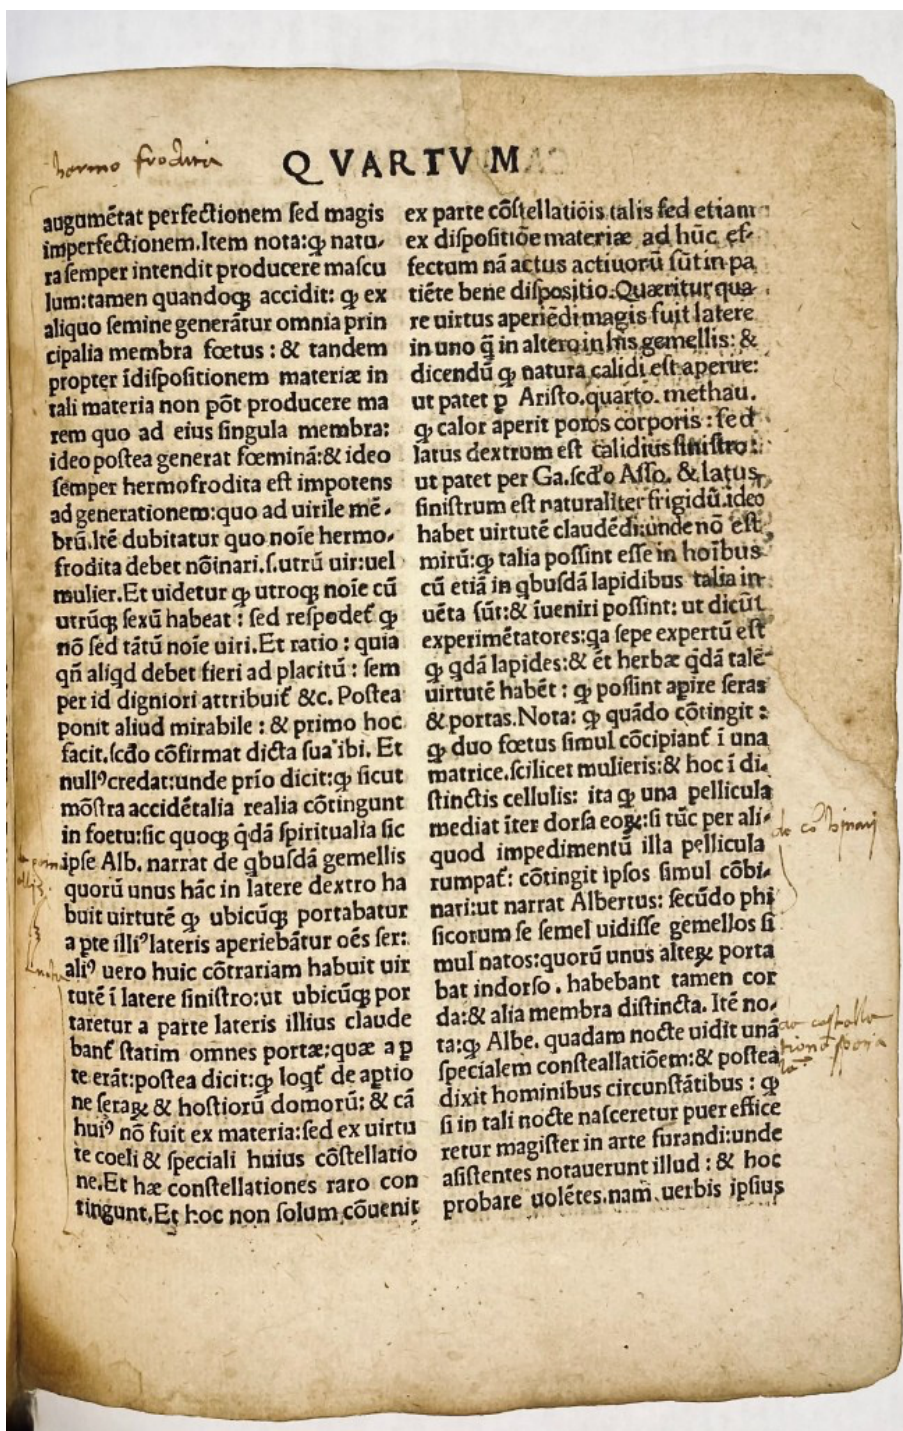 hermo frodita
QVARTVM
augumētat perfectionem ſed magis
imperfectionem.Item nota:ꝙ natu-
ra ſemper intendit producere maſcu
lum:tamen quandoqꝫ accidit: ꝙ ex
aliquo ſemine generātur omnia prin
cipalia membra fœtus : & tandem
propter īdiſpoſitionem materiæ in
tali materia non pōt producere ma
rem quo ad eius ſingula membra:
ideo poſtea generat fœminā:& ideo
ſemper hermofrodita eſt impotens
ad generationem:quo ad uirile mē-
brū.Itē dubitatur quo noīe hermo-
frodita debet nōinari.ſ.utrū uir:uel
mulier.Et uidetur ꝙ utroqꝫ noīe cū
utrūqꝫ ſexū habeat : ſed reſpōdet᷑ ꝙ
nō ſed tātū noīe uiri.Et ratio : quia
qn̄ aliqd debet fieri ad placitū : ſem
per id digniori attribuit᷑ &c. Poſtea
ponit aliud mirabile : & primo hoc
facit.ſcdo cōfirmat dicta ſua ibi. Et
nullꝰ credat:unde prīo dicit:ꝙ ſicut
mōſtra accidētalia realia cōtingunt
in foetu:ſic quoqꝫ q̄dā ſpiritualia ſic
ipſe Alb. narrat de qbuſdā gemellis
quorū unus hāc in latere dextro ha
buit uirtutē ꝙ ubicūqꝫ portabatur
a pte illiꝰ lateris aperiebātur oēs ſer:
aliꝰ uero huic cōtrariam habuit uir
tutē ī latere ſiniſtro:ut ubicūqꝫ por
taretur a parte lateris illius claude
bant᷑ ſtatim omnes portæ:quæ a ꝑ
te erāt:poſtea dicit:ꝙ loqt᷑ de aptio
ne ſeraꝝ & hoſtiorū domorū: & cā
huiꝰ nō fuit ex materia:ſed ex uirtu
te coeli & ſpeciali huius cōſtellatio
ne.Et hæ conſtellationes raro con
tingunt.Et hoc non ſolum cōuenit
ex parte cōſtellatiōis talis ſed etiam
ex diſpoſitiōe materiæ ad hūc ef-
fectum nā actus actiuorū ſūt in pa
tiēte bene diſpoſitio.Quæritur qua
re uirtus aperiēdi magis fuit latere
in uno q̄ in altero in his gemellis: &
dicendū ꝙ natura calidi eſt aperire:
ut patet ꝑ Ariſto.quarto. methau.
ꝙ calor aperit poros corporis : ſed
latus dextrum eſt calidius ſiniſtro :
ut patet per Ga.ſcdo Aſſo. & latus
ſiniſtrum eſt naturaliter frigidū.ideo
habet uirtutē claudēdi:unde nō eſt
mirū:ꝙ talia poſſint eſſe in hoībus
cū etiā in qbuſdā lapidibus talia in
uēta ſūt:& īueniri poſſint: ut dicūt
experimētatores:qa ſepe expertū eſt
ꝙ qdā lapides:& ēt herbæ q̄dā talē
uirtutē habēt : ꝙ poſſint apire ſeras
& portas.Nota: ꝙ quādo cōtingit :
ꝙ duo fœtus ſimul cōcipiant᷑ ī una
matrice.ſcilicet mulieris:& hoc ī di-
ſtinctis cellulis: ita ꝙ una pellicula
mediat īter dorſa eoꝝ:ſi tūc per ali-
quod impedimentū illa pellicula
rumpat᷑: cōtingit ipſos ſimul cōbi-
nari:ut narrat Albertus: ſecūdo phi
ſicorum ſe ſemel uidiſſe gemellos ſi
mul natos:quorū unus alteꝝ porta
bat indorſo . habebant tamen cor
da:& alia membra diſtincta. Itē no-
ta:ꝙ Albe. quadam nocte uidit unā
ſpecialem conſteallatiōem:& poſtea
dixit hominibus circunſtātibus : ꝙ
ſi in tali nocte naſceretur puer effice
retur magiſter in arte furandi:unde
aſiſtentes notauerunt illud : & hoc
probare uolētes.nam uerbis ipſius